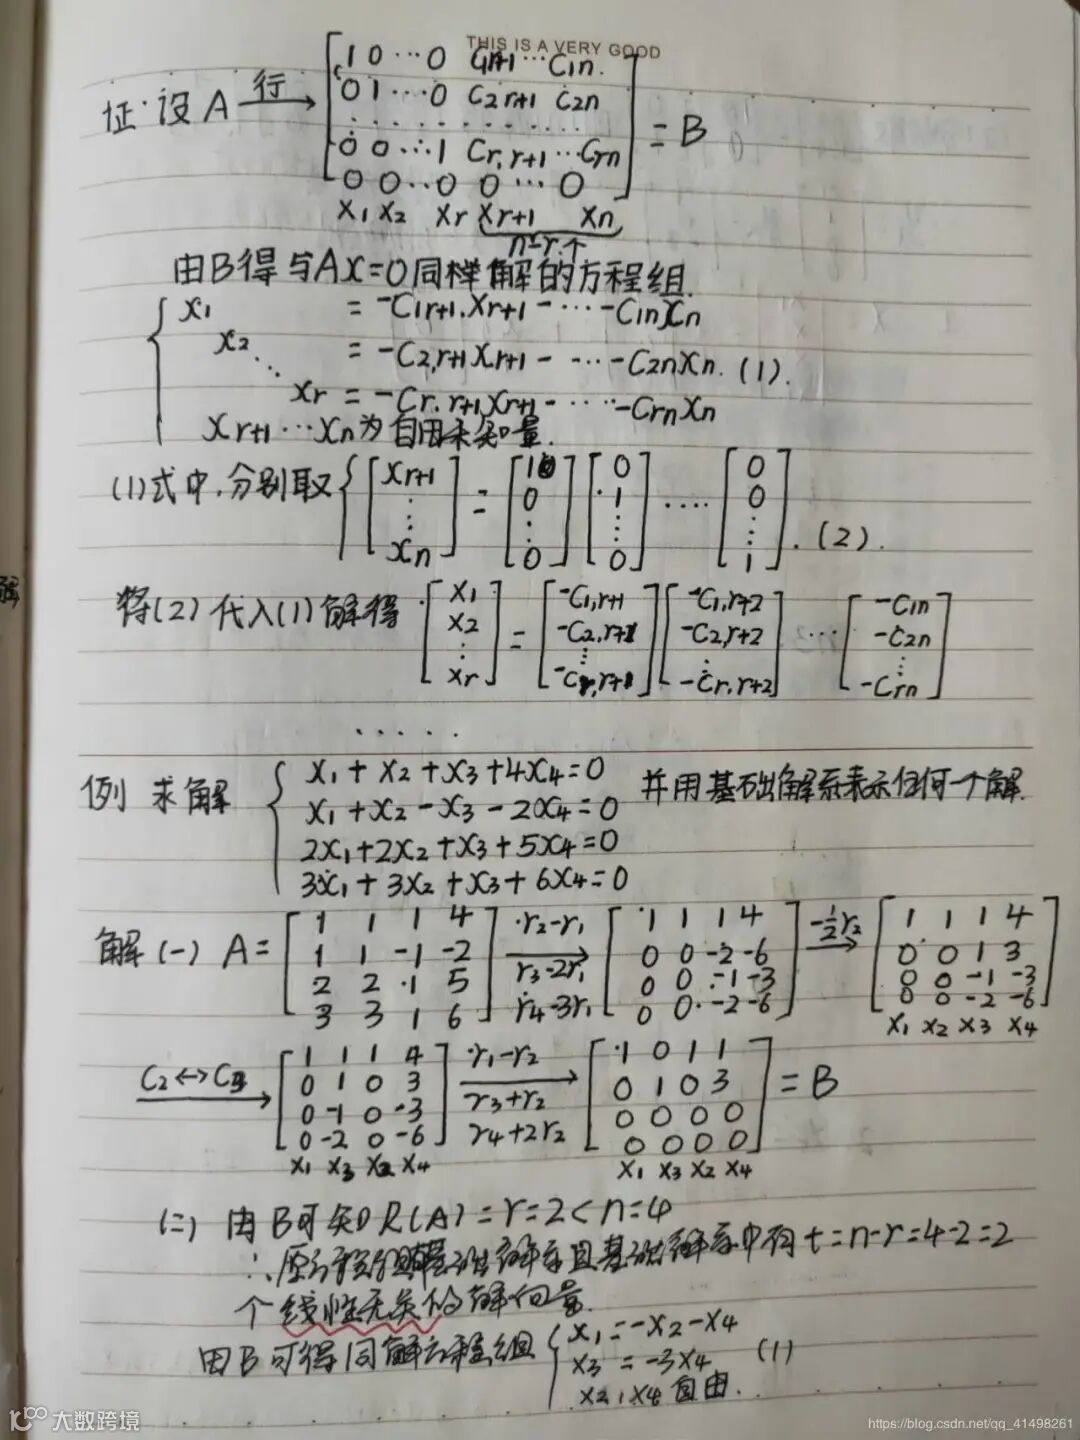 THIS IS A VERY GOOD
证:设A 行→ [1 0 ⋯ 0 C1r+1 ⋯ C1n
0 1 ⋯ 0 C2r+1 C2n
⋯⋯⋯⋯
0 0 ⋯ 1 Cr,r+1 ⋯ Crn
0 0 ⋯ 0 0 ⋯ 0] = B
x1 x2 xr xr+1 xn
n-r个
由B得与AX=0同样解的方程组.
{ x1 = -C1r+1.Xr+1 - ⋯ -C1nXn
x2 = -C2,r+1Xr+1 - ⋯ -C2nXn. (1).
⋱
xr = -Cr.r+1Xr+1 - ⋯ -CrnXn
Xr+1 ⋯ Xn为自由未知量.
(1)式中,分别取 { [Xr+1 ⋮ Xn] = [1 0 ⋮ 0] [0 1 ⋮ 0] ⋯ [0 0 ⋮ 1]. (2).
将(2)代入(1)解得 [x1 x2 ⋮ xr] = [-C1,r+1 -C2,r+1 ⋮ -Cr,r+1] [-C1,r+2 -C2,r+2 ⋮ -Cr,r+2] ⋯ [-C1n -C2n ⋮ -Crn]
⋯⋯
例 求解 { x1+x2+x3+4x4=0 并用基础解系表示任何一个解.
x1+x2-x3-2x4=0
2x1+2x2+x3+5x4=0
3x1+3x2+x3+6x4=0
解(一) A= [1 1 1 4
1 1 -1 -2
2 2 1 5
3 3 1 6] r2-r1 r3-2r1 r4-3r1 → [1 1 1 4
0 0 -2 -6
0 0 -1 -3
0 0 -2 -6] -1/2r2 → [1 1 1 4
0 0 1 3
0 0 -1 -3
0 0 -2 -6]
x1 x2 x3 x4
C2↔C3 → [1 1 1 4
0 1 0 3
0 -1 0 -3
0 -2 0 -6] r1-r2 r3+r2 r4+2r2 → [1 0 1 1
0 1 0 3
0 0 0 0
0 0 0 0] = B
x1 x3 x2 x4 x1 x3 x2 x4
(二) 由B可知R(A)=r=2<n=4
∴原方程组基础解系且基础解系中有t=n-r=4-2=2
个线性无关的解向量.
由B可得同解方程组 { x1=-x2-x4
x3=-3x4 (1)
x2,x4自由.
大数跨境
https://blog.csdn.net/qq_41498261